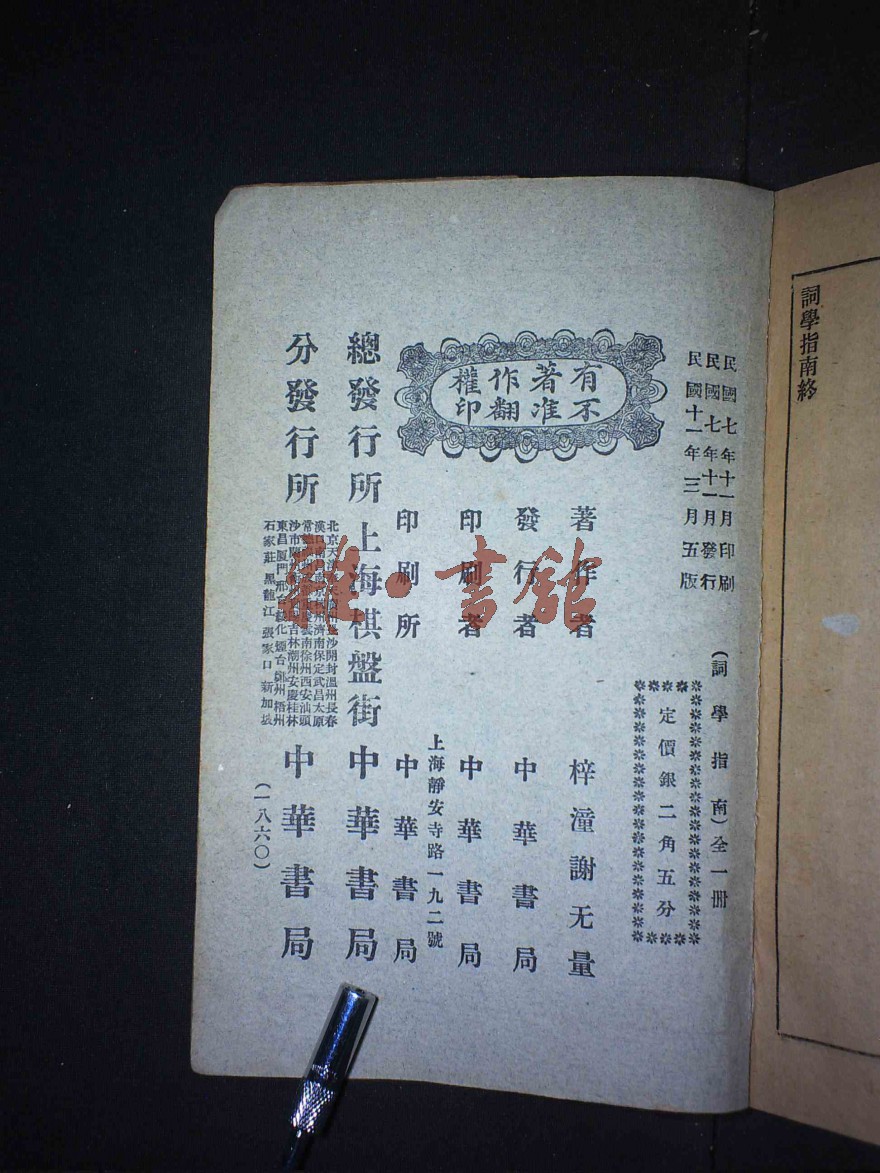 詞學指南終
民國七年十一月印刷
民國七年十一月發行
民國十一年三月五版
(詞學指南)全一冊
定價銀二角五分
有著作權
不准翻印
著作者 梓潼謝无量
發行者 中華書局
印刷者 中華書局
上海靜安寺路一九二號
印刷所 中華書局
總發行所 上海棋盤街 中華書局
分發行所
北京天 沙開封溫州長春
漢口 濟南保定武昌太原
常 雲南徐州西安汕頭
沙市 吉林潮州安慶桂林
東昌廈門 化煙台鄭州梧州
石家莊 黑龍江 張家口 新加坡
中華書局
(一八六〇)
雜·書館